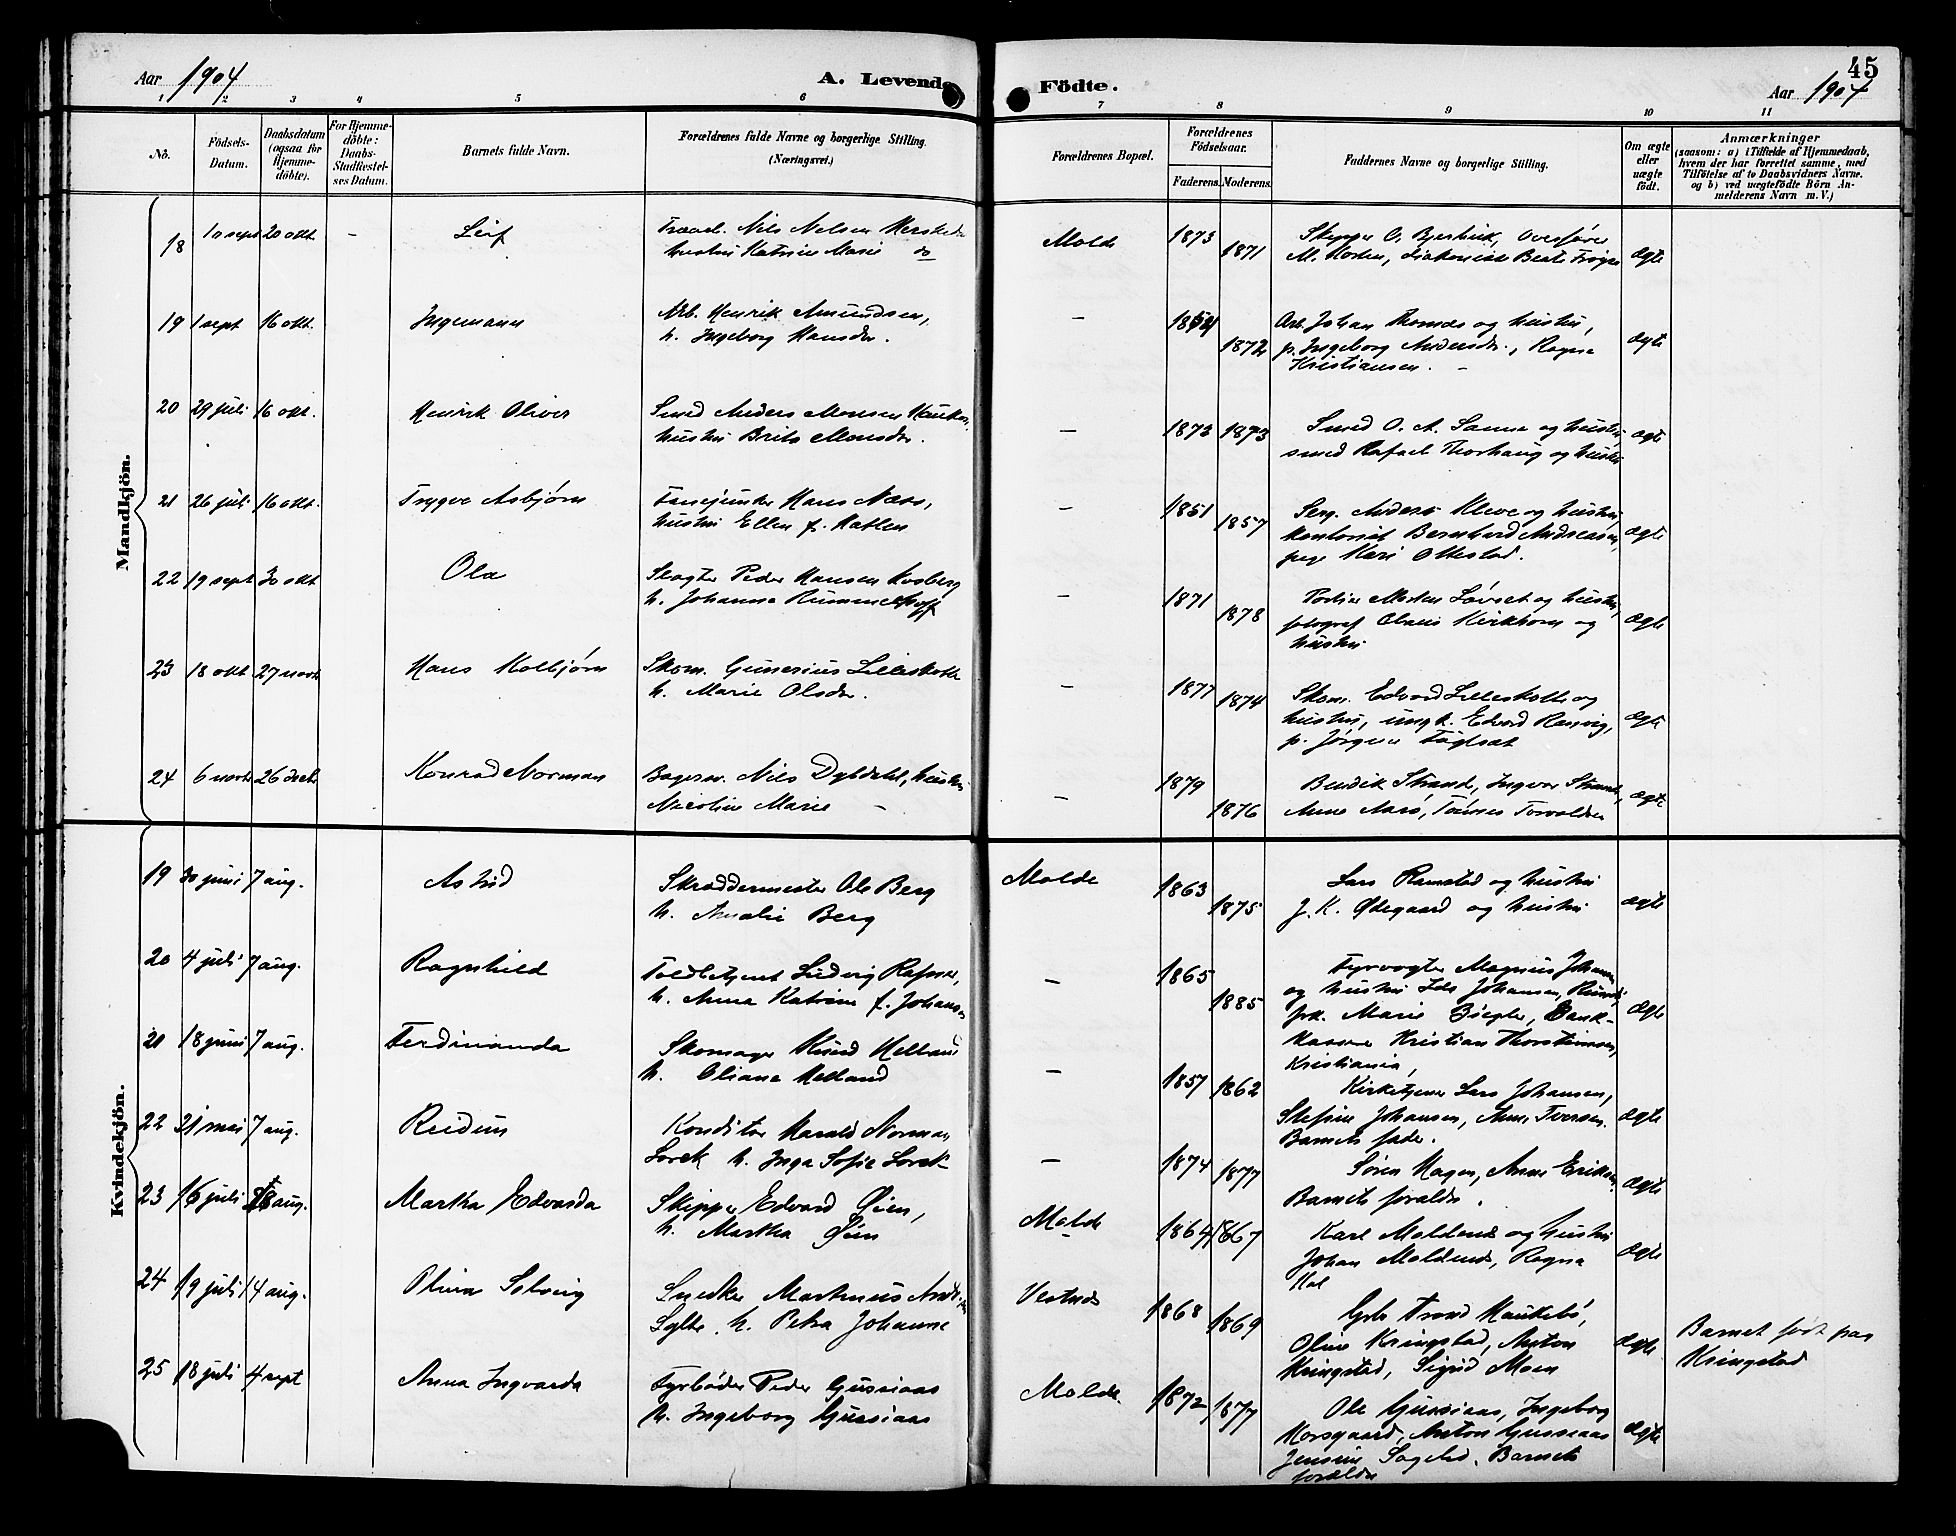 45
Aar 1904
A. Levende
Födte.
Aar 1904
1 2 3 4 5 6 7 8 9 10 11
No.
Födsels-
Datum.
Daabsdatum
(ogsaa för
Hjemme-
döbte).
For Hjemme-
döbte:
Daabs-
Stadfæstel-
ses Datum.
Barnets fulde Navn.
Forældrenes fulde Navne og borgerlige Stilling.
(Næringsvei.)
Forældrenes Bopæl.
Forældrenes
Födselsaar.
Faderens. Moderens.
Faddernes Navne og borgerlige Stilling.
Om ægte
eller
uægte
födt.
Anmærkninger
(saasom: a) i Tilfælde af Hjemmedaab,
hvem der har forrettet samme, med
Tilföielse af to Daabsvidners Navne.
og b) ved uægtefödte Börn An-
melderens Navn m. V.)
Mandkjön.
18 10 sept 20 okt. - Leif
Nils Nelsen
hustru Katrine Marie do
Molde 1873 1871
Skipper O.
M. diakonisse Beate
ægte
19 1 sept 16 okt. Ingemann
Arb. Henrik Amundsen,
h. Ingeborg Hansdr.
- 1872
Arb. Johan Thomas og hustru,
p. Ingeborg Andersdr., Ragna
Kristiansen. -
ægte
20 29 juli 16 okt. Henrik Oliver
Smed Anders Monsen
hustru Brite Monsdr.
- 1873 1873
Smed O. A. Sanne og hustru
smed Rafael Thorhaug og hustru
ægte
21 26 juli 16 okt. Trygve Asbjørn
Hans Næss,
hustru Ellen f.
- 1851 1857
Serg. Anders Kleve og hustru,
kontorist Bernhard Andreasen,
pige Kari Ottestad.
ægte
22 19 sept 30 okt Ola
Slagter Peder Hansen
h. Johanna Rummelhoff
- 1871 1878
Morten Løvset og hustru,
fotograf Olaus Kirkhorn og
hustru
ægte
23 18 okt 27 novb Hans Kolbjørn
Skom. Gunerius Lilleskotte
h. Marie Olsdr.
- 1877 1874
Skom. Edvard Lilleskotte og
hustru, ungk. Edvard Ransvig,
p. Jørgine
ægte
24 6 novb 26 decb Konrad Norman
Bagersv. Nils Dybdahl, hustru
Nicoline Marie -
- 1879 1876
Bendik Strande, Ingvar Strande,
Anne Aarø, Tønnes Torvaldsen
ægte
Kvindekjön.
19 30 juni 7 aug. Astrid
Skræddermester Ole Berg
h. Amalie Berg
Molde 1863 1875
Lars Ramstad og hustru
J. K. Ødegaard og hustru
ægte
20 4 juli 7 aug. Ragnhild
Toldbetjent Ludvig
h. Anna Katrine f. Johansen
- 1865 1885
Fyrvogter Magnus Johansen
og hustru Johansen,
frk. Marie Ziegler, Bank-
kasserer Kristian Thorstensen,
Kristiania,
ægte
21 18 juni 7 aug. Ferdinanda
Skomager Knud Helland
h. Oliana Helland
- 1857 1862
Kirketjener Lars Johansen,
Stefine Johansen, Anne Iversen.
Barnets fader.
ægte
22 31 mai 7 aug. Reidun
Konditor Harald Norman
Lorck h. Inga Sofie Lorck
- 1874 1877
Søren Hagen, Anne Eriksen.
Barnets foraldre.
ægte
23 16 juli aug. Martha Edvarda
Skipper Edvard Øien,
h. Martha Øien
Molde 1864 1867
Karl Moldenes og hustru
Johan Moldenes, Ragna
Hol
ægte
24 19 juli 14 aug. Olina Solveig
Snedker Martinus
Sylte h. Petra Johanne
Vestnes 1868 1869
Gbr Trond Haukebø,
Oline Kringstad, Anton
Kringstad, Sigrid Moen
ægte
Barnet født paa
Kringstad
25 18 juli 4 sept Anna Ingvarda
Fyrbøder Peder Gussiaas
h. Ingeborg Gussiaas
Molde. 1872 1877
Ole Gussiaas, Ingeborg
Korsgaard, Anton Gussiaas
Jensine Barnets
forældre
ægte